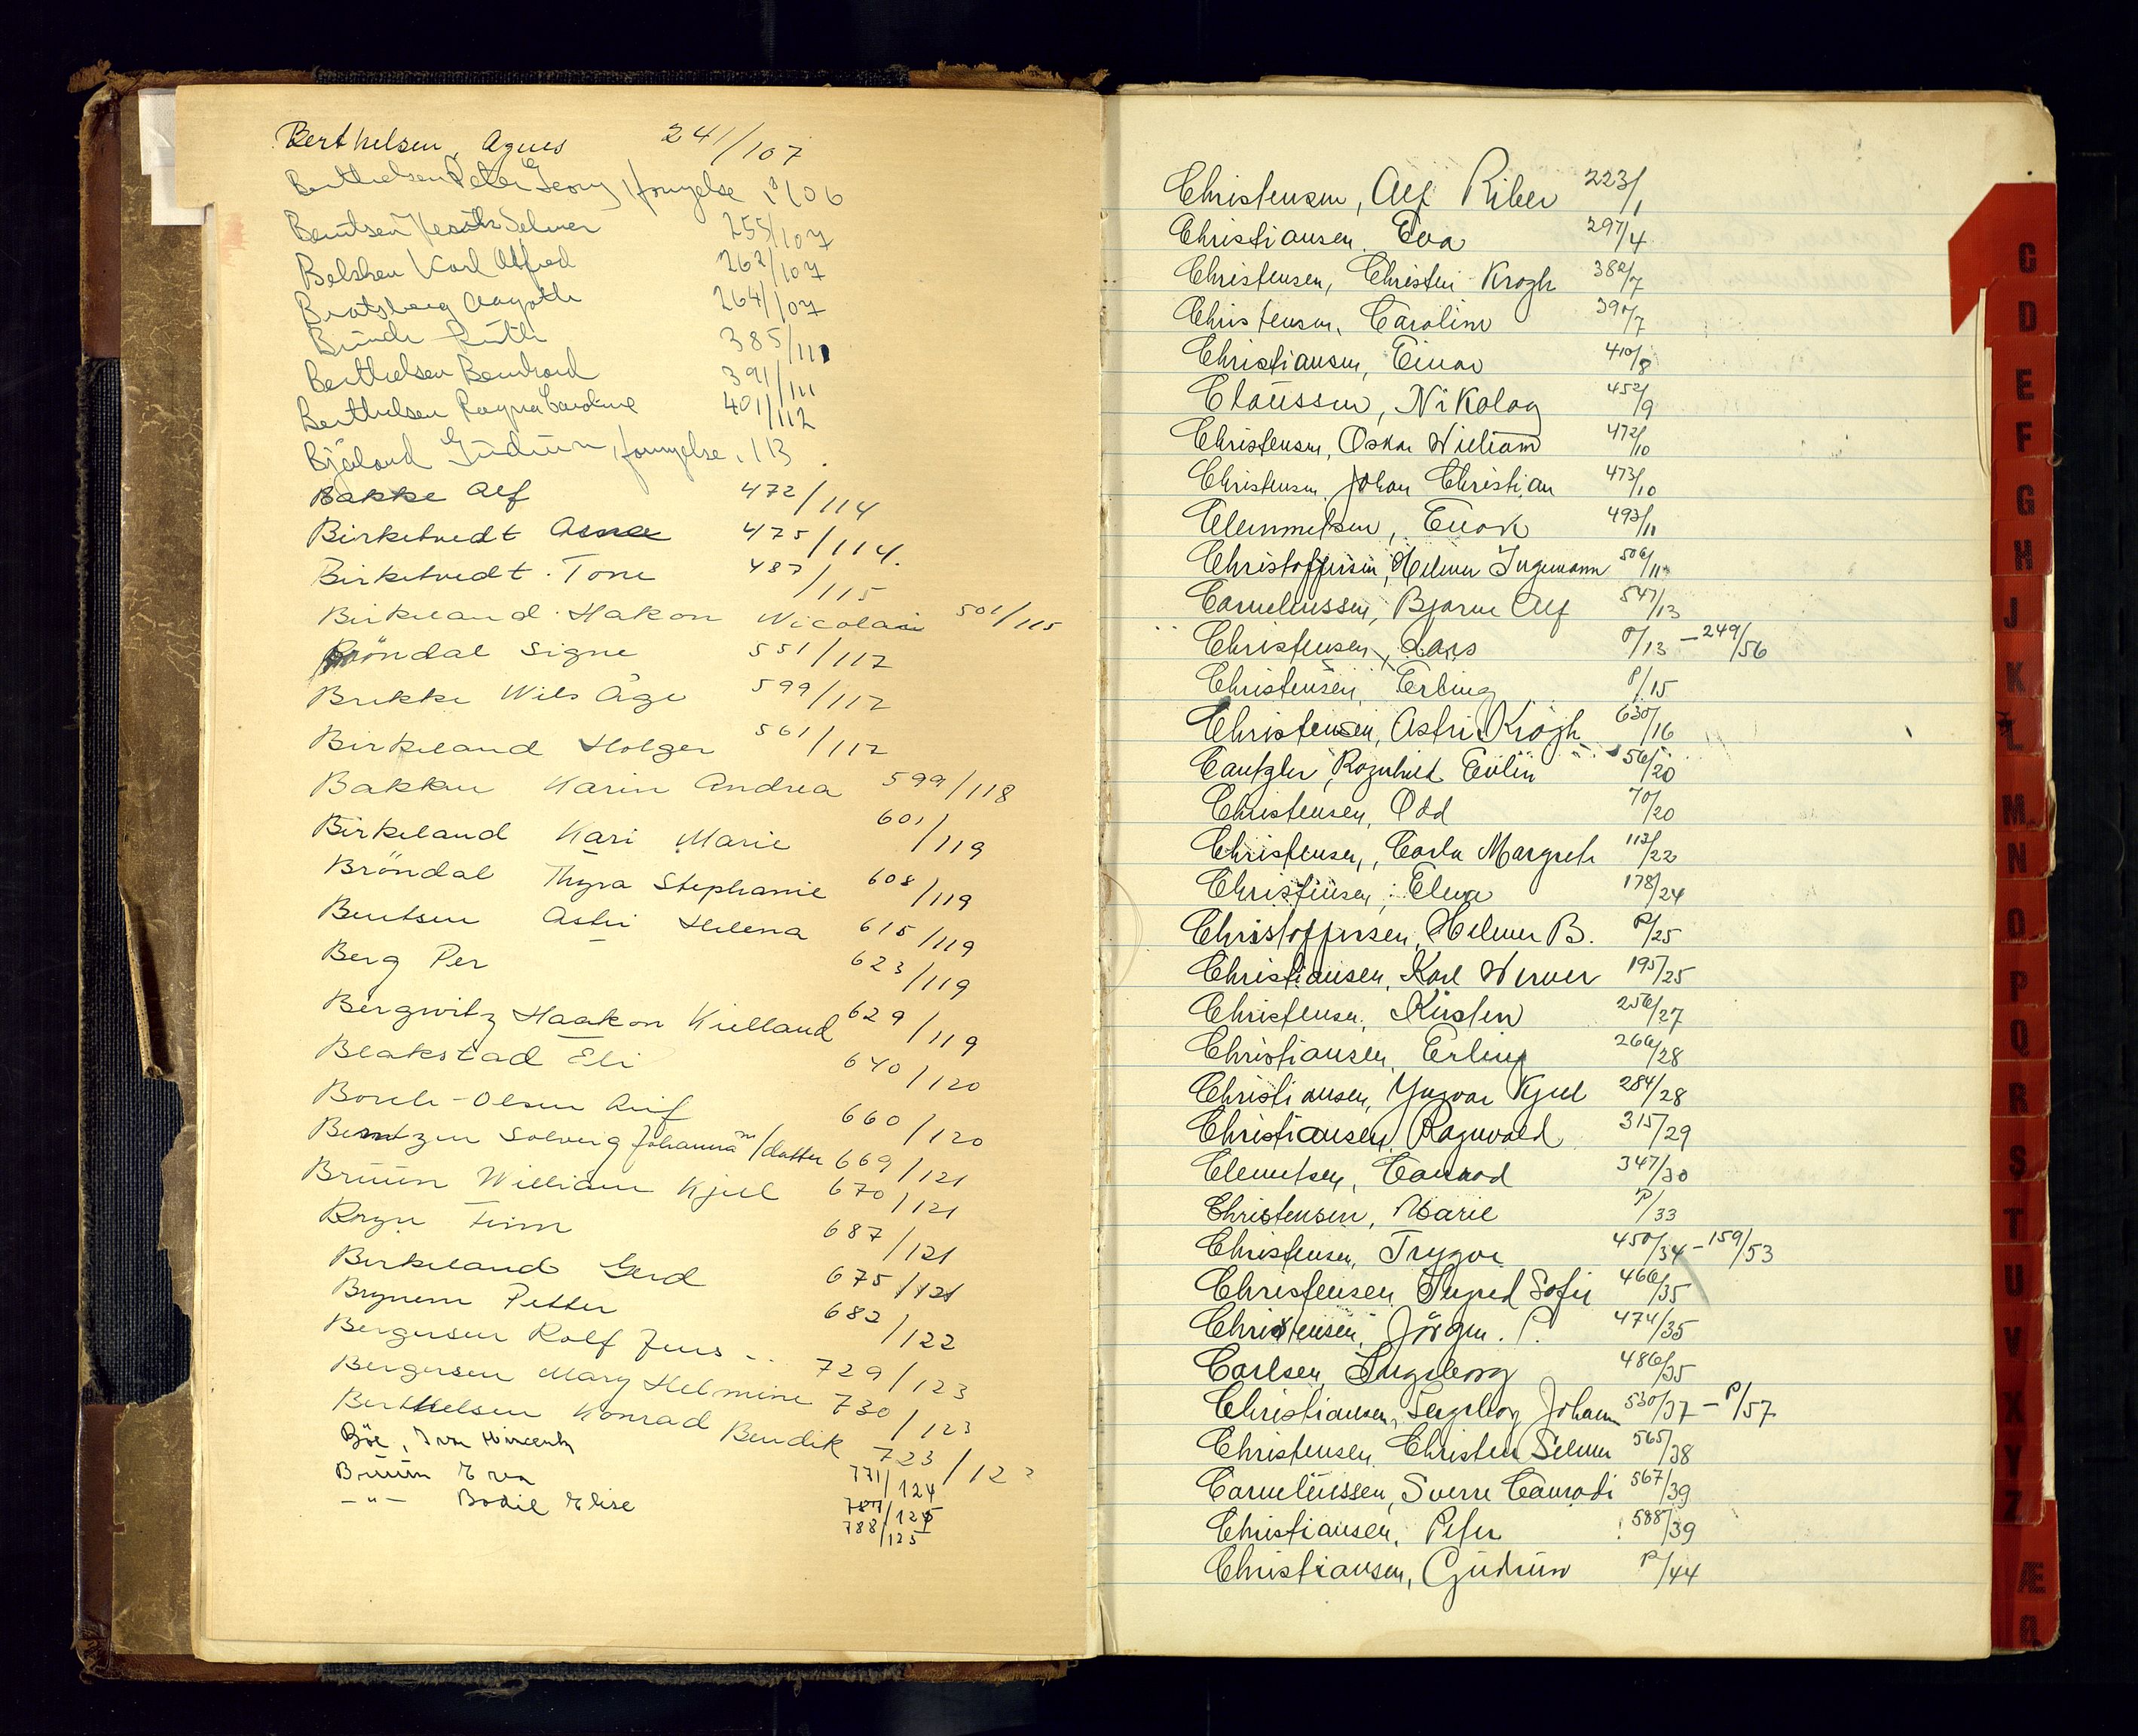 Berthelsen, Agnes 241/107
Berthelsen Peter Georg, fornyelse P/106
Berntsen Selmer 255/107
Belsken Karl Alfred 262/107
Bratsberg Aagoth 264/107
Bünde Ruth 385/111
Berthelsen Bernhard 391/111
Berthelsen Ragna Caroline 401/112
Bjåland Gudrun, fornyelse, 113
Bakke Alf 472/114
Birketvedt Anna 475/114.
Birketvedt. Tone 487/115
Birkeland. Håkon Nicolai 501/115
Bröndal Signe 551/117
Brekke Nils Åge 599/117
Birkeland Holger 561/117
Bakken Karin Andrea 599/118
Birkeland Kari Marie 601/119
Bröndal Thyra Stephanie 608/119
Bentsen Astri Helena 615/119
Berg Per 623/119
Bergwitz Haakon Kielland 629/119
Blakstad Eli 640/120
Borch-Olsen Arif 660/120
Berntzen Solveig Johanna m/datter 669/121
Bruun William Kjell 670/121
Bryn Finn 687/121
Birkeland Gerd 675/121
Brynem Petter 682/122
Bergersen Rolf Jens 729/123
Bergersen Mary Helmine 730/123
Berthelsen Konrad Bendik 723/12
Böe, Ivar Hincentz 771/124
Bruun Eva 787/125
-"- Bodil Elise 788/125
Christensen, Alf Riber 223/1
Christiansen. Eva 297/4
Christensen, Christen Krogh 382/7
Christensen, Caroline 390/7
Christiansen, Einar 410/8
Claussen, Nikolay 452/9
Christensen, Oskar William 472/10
Christensen, Johan Christian 473/10
Clemmetsen, Enok 493/11
Christoffersen, Helmer Ingemann 506/11
Corneliussen, Bjarne Alf 547/13
Christensen, Lars P/13 - 249/56
Christensen, Erling P/15
Christensen, Astri Krogh 630/16
Cantzler, Ragnhild Evelin 56/20
Christensen, Odd 70/20
Christensen, Carla Margreth 113/22
Christensen, Elna 178/24
Christoffersen, Helmer B. P/25
Christiansen, Karl Werner 195/25
Christensen, Kirsten 256/27
Christiansen, Erling 266/28
Christiansen, Yngvar Kjell 284/28
Christiansen, Ragnvald 315/29
Clemetsen, Conrad 347/30
Christensen, Marie P/33
Christensen, Trygve 450/34 - 159/53
Christensen, Ingrid Sofie 466/35
Christensen, Jörgen. P. 474/35
Carlsen, Ingeborg 486/35
Christiansen, Ingeborg Johanne 530/37 - P/57
Christensen, Christen Selmer 565/38
Corneliussen, Sverre Conradi 567/39
Christiansen, Peter 588/39
Christiansen, Gudrun P/44
C
D
E
F
G
H
J
K
L
M
N
O
P
Q
R
S
T
U
V
X
Y
Z
Æ
Ø